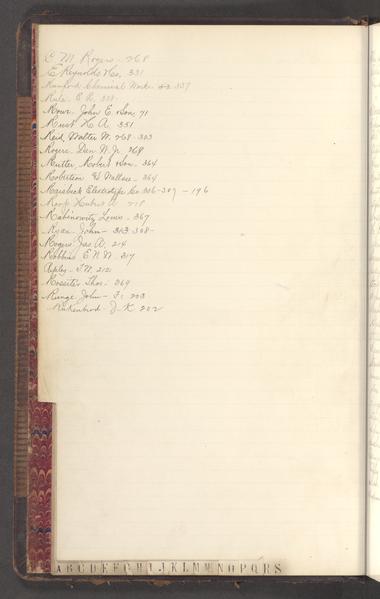 C. M. Rogers - 268
E Reynolds & Co, 331
Rumford Chemical Works 337
Rule. E. R. 308-
Rowe. John E & Son, 71
Rust H. A. 351
Reid Walter W. 268-303
Rogers. Dan W. Jr. 268
Rutter, Robert & Son. 364
Robertson & Wallace - 364
Raisbeck Electrotype Co 306-307 - 196
Hubert 218
Rabinowitz Louis - 367
Ryan John - 303 308-
Rogers Jas. A. 214
Robbins E. N. N. 317
Ripley - J. W. 212
Rossiter Thos. 369
Runge John - F. 203
J. K 202
A B C D E F G H I J K L M N O P Q R S